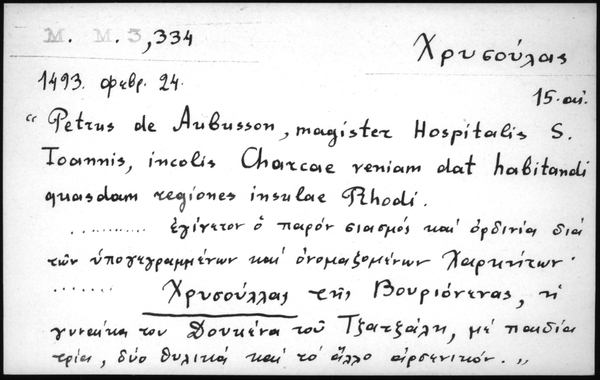 M. M. 3,334
Χρυσούλας
1493. φεβρ. 24.
15. αι.
“ Petrus de Aubusson, magister Hospitalis S.
Ioannis, incolis Charcae veniam dat habitandi
quasdam regiones insulae Rhodi.
........... ἐγίνετον ὁ παρόν σιασμός καί ὀρδινία διά
τῶν ὑπογεγραμμένων καί ὀνομαζομένων Χαρκιτων·
....... Χρυσούλλας τῆς Βουριόνενας, ἡ
γυναίκα του Δουκένα τοῦ Τζατζάλη, μέ παιδία
τρία, δύο θυλικά καί τό ἄλλο αἱρσενικόν. „